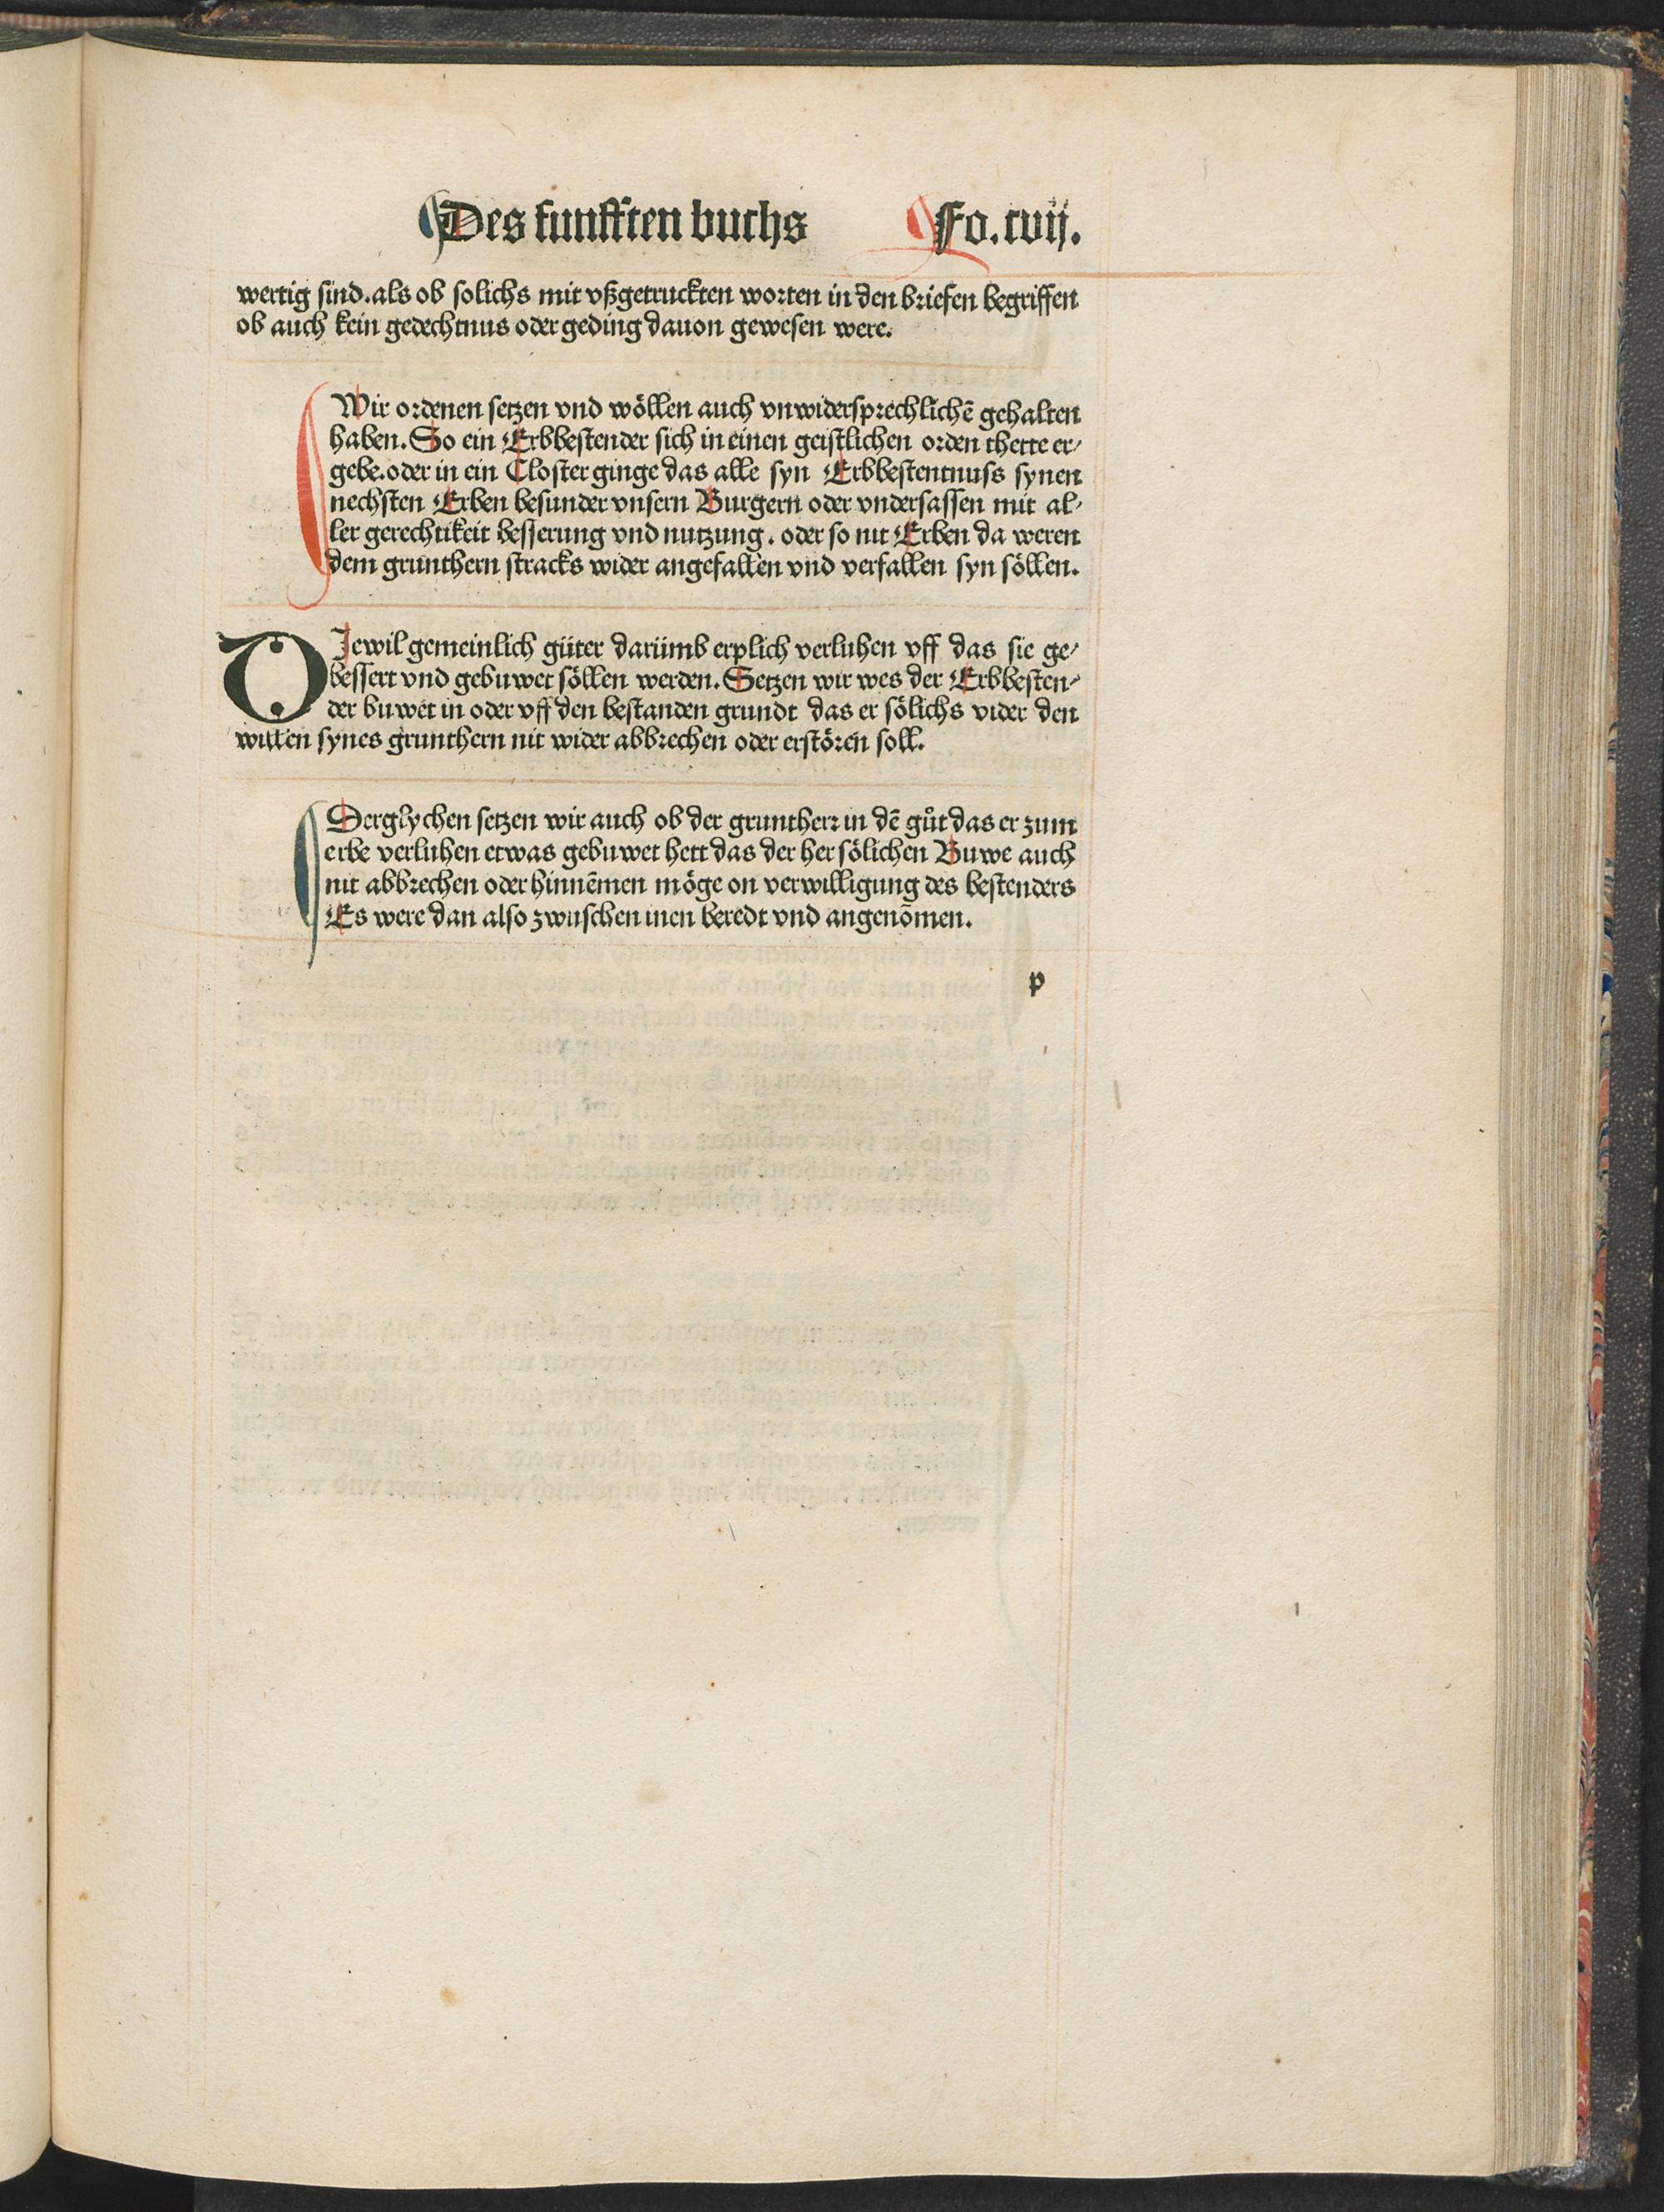 Des funfften buchs Fo. cvij.
wertig sind. als ob solichs mit vßgetruckten worten in den briefen begriffen
ob auch kein gedechtnus oder geding dauon gewesen were.
Wir ordenen setzen vnd wöllen auch vnwidersprechlichē gehalten
haben. So ein Erbbestender sich in einen geistlichen orden thette er⸗
gebe. oder in ein Closter ginge das alle syn Erbbestentnuss synen
nechsten Erben besunder vnsern Burgern oder vndersassen mit al⸗
ler gerechtikeit besserung vnd nutzung. oder so nit Erben da weren
dem grunthern stracks wider angefallen vnd verfallen syn söllen.
DJewil gemeinlich güter darümb erplich verluhen vff das sie ge⸗
bessert vnd gebuwet söllen werden. Setzen wir wes der Erbbesten⸗
der buwet in oder vff den bestanden grundt das er sölichs vider den
willen synes grunthern nit wider abbrechen oder erstören soll.
Derglychen setzen wir auch ob der gruntherr in dē gůt das er zum
erbe verluhen etwas gebuwet hett das der her sölichen Buwe auch
nit abbrechen oder hinnēmen möge on verwilligung des bestenders
Es were dan also zwuschen inen beredt vnd angenōmen.
p